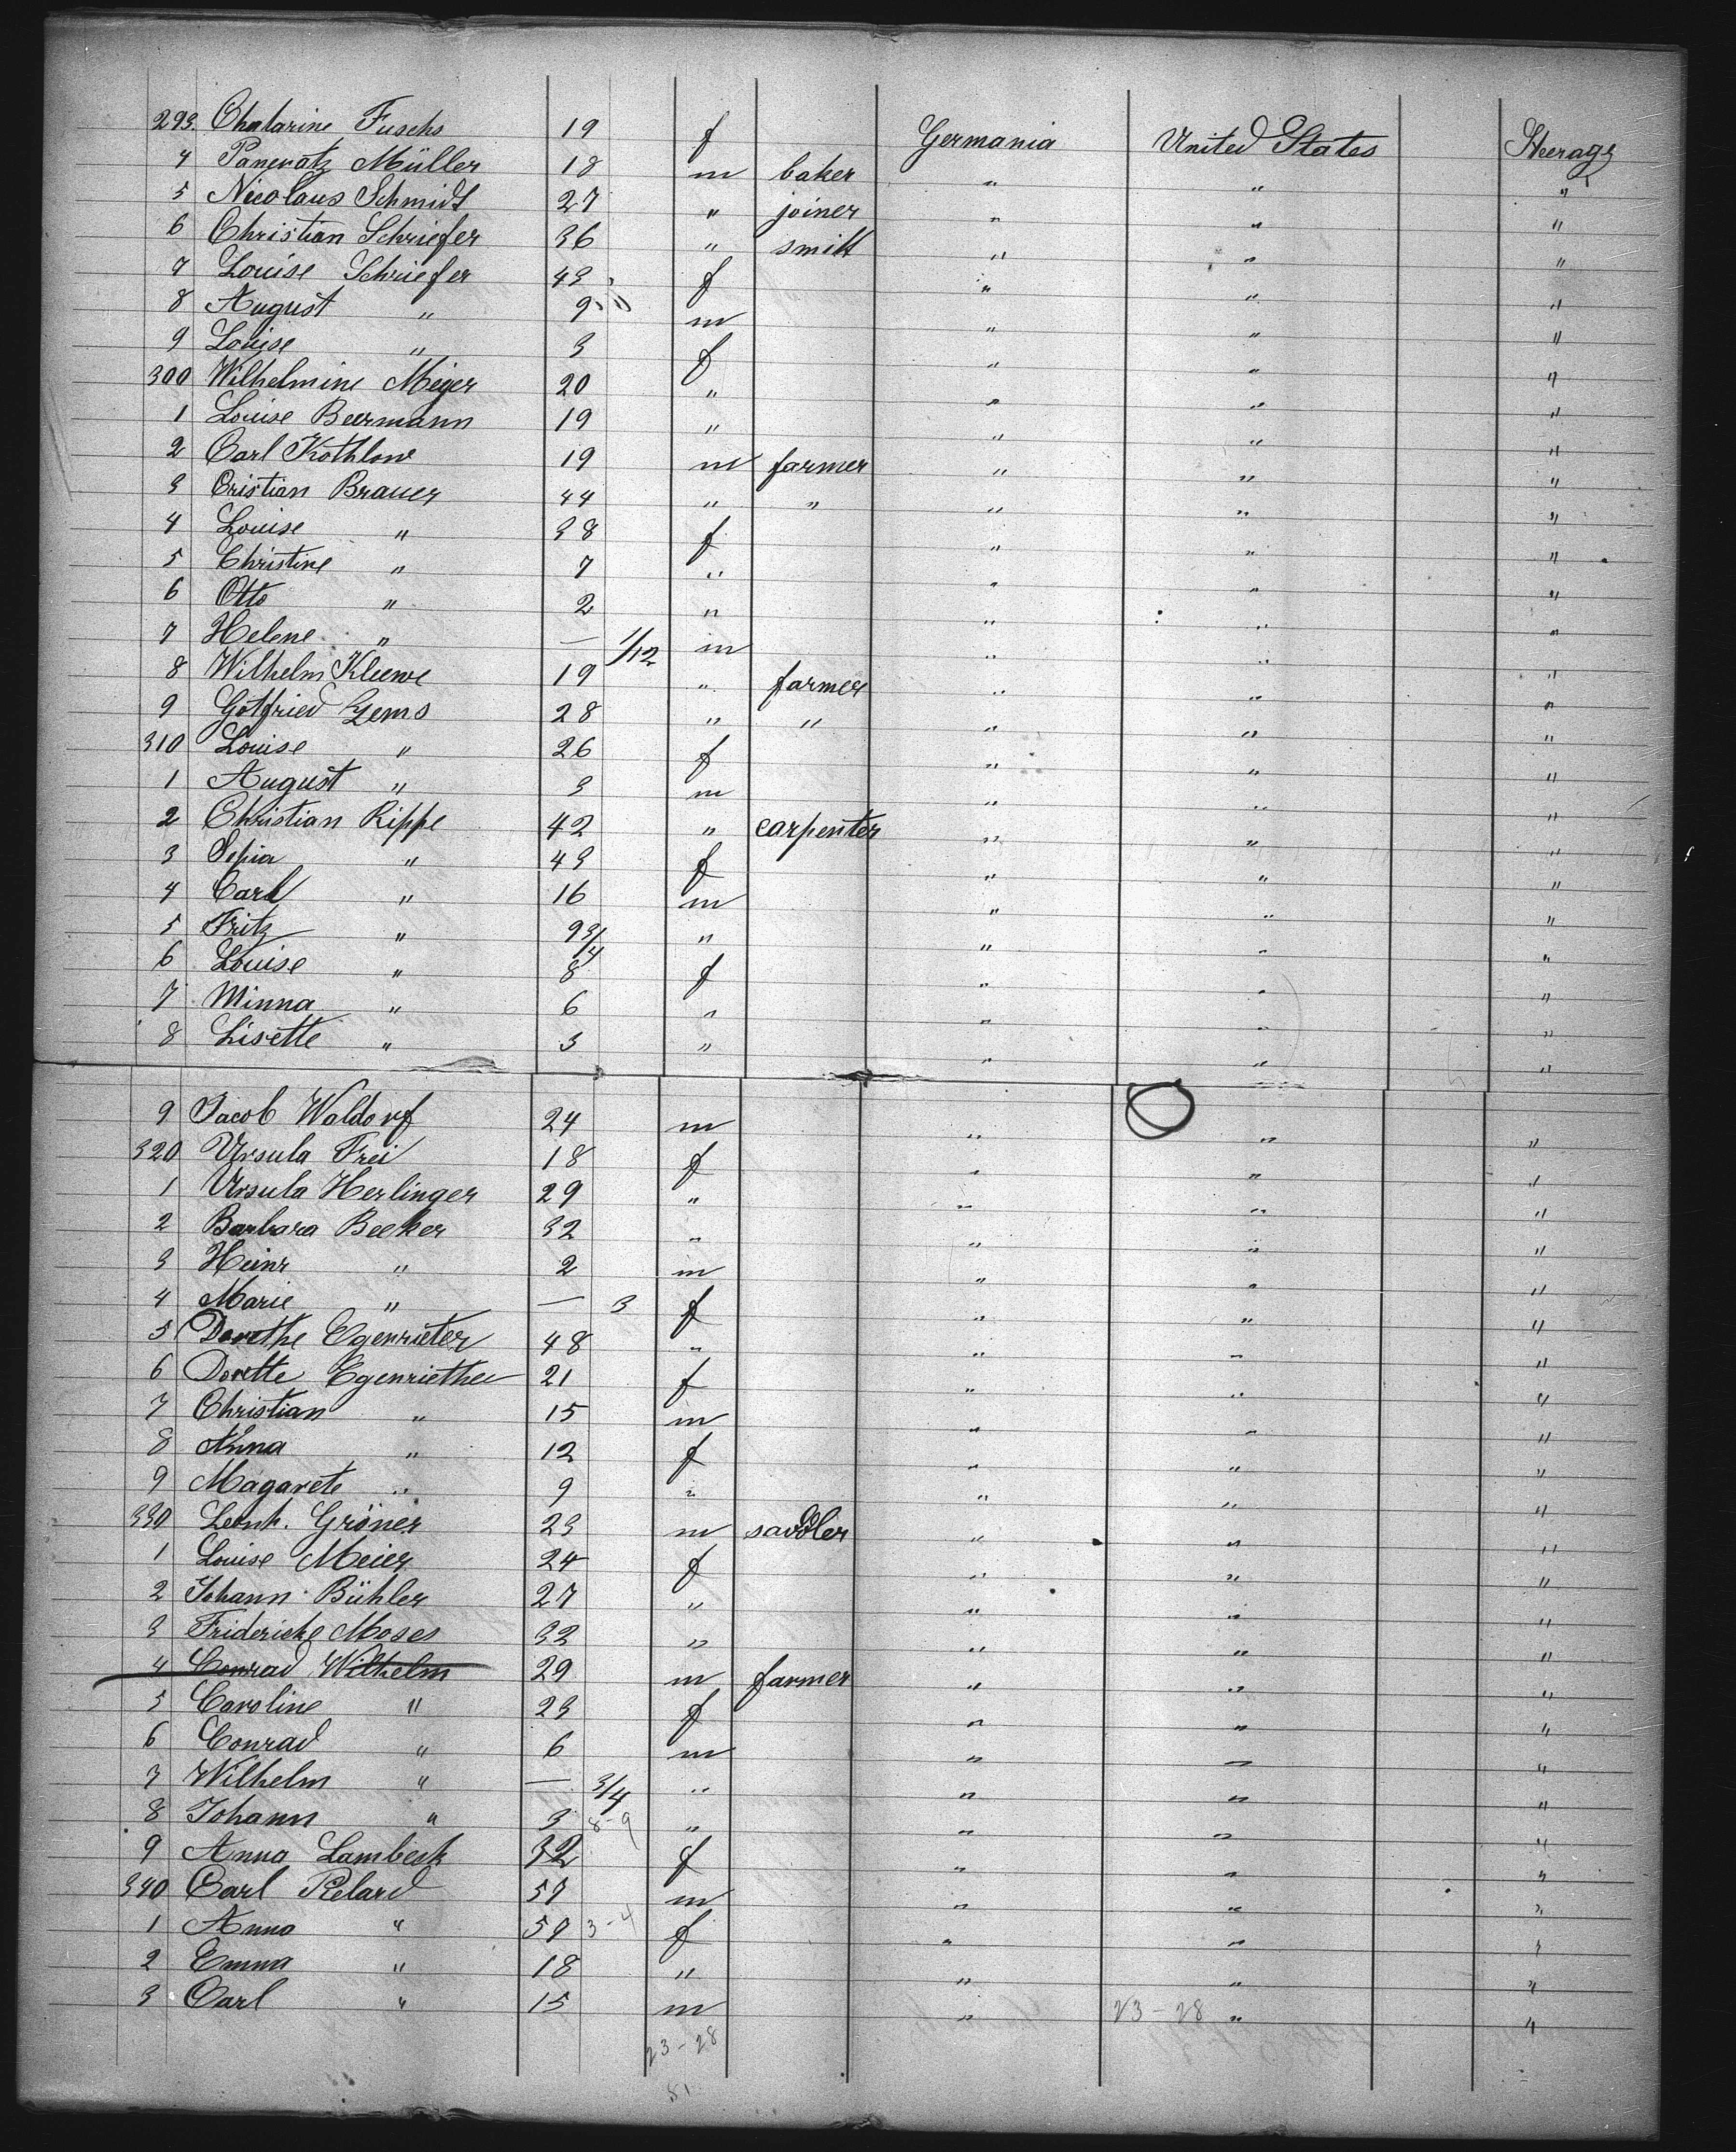 293. Chatarine Fuschs 19 f Germania United States Steerage
4 Pancratz Müller 18 m baker " " "
5 Nicolaus Schmidt 27 " joiner " " "
6 Christian Schriefer 36 " smitt " " "
7 Louise Schriefer 43 f " " "
8 August " 9 m " " "
9 Louise " 3 f " " "
300 Wilhelmine Meyer 20 " " " "
1 Louise Beermann 19 " " " "
2 Carl Kothlow 19 m farmer " " "
3 Cristian Brauer 44 " " " " "
4 Louise " 38 f " " "
5 Christine " 7 " " " "
6 Otto " 2 " " " "
7 Helene " — 1/12 m " " "
8 Wilhelm Kleewe 19 " farmer " " "
9 Gotfried Gems 28 " " " " "
310 Louise " 26 f " " "
1 August " 3 m " " "
2 Christian Rippe 42 " carpenter " " "
3 Sepia " 43 f " " "
4 Carl " 16 m " " "
5 Fritz " 9 3/4 " " " "
6 Louise " 8 f " " "
7 Minna " 6 " " " "
8 Lisette " 3 " " " "
9 Jacob Waldorf 24 m " " "
320 Ursula Frei 18 f " " "
1 Ursula Herlinger 29 " " " "
2 Barbara Becker 32 " " " "
3 Heinr " 2 m " " "
4 Marie " — 3 f " " "
5 Dorethe Egenrieter 48 " " " "
6 Dorette Egenriether 21 f " " "
7 Christian " 15 m " " "
8 Anna " 12 f " " "
9 Magarete " 9 " " " "
330 Leonh. Gröner 23 m saddler " " "
1 Louise Meier 24 f " " "
2 Johann Bühler 27 " " " "
3 Friderieke Moses 32 " " " "
4 Conrad Wilhelm 29 m farmer " " "
5 Caroline " 23 f " " "
6 Conrad " 6 m " " "
7 Wilhelm " — 3/4 " " " "
8 Johann " 3 8-9 " " " "
9 Anna Lambeck 32 f " " "
340 Carl Relard 57 m " " "
1 Anna " 59 3-4 f " " "
2 Emma " 18 " " " "
3 Carl " 15 m " 23-28 " "
23-28